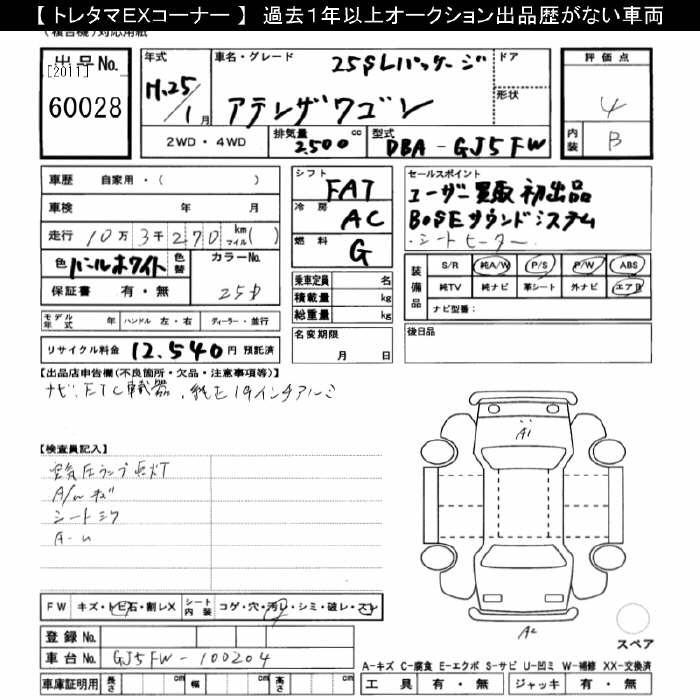 【 トレタマEXコーナー 】 過去１年以上オークション出品歴がない車両
(複合機)対応用紙
出品No.
[2011]
60028
年式
H.25/1月
車名・グレード
25S Lパッケージ
アテンザワゴン
ドア
形状
評価点
4
内装
B
2WD・4WD
排気量 2,500 cc
型式 DBA-GJ5FW
車歴 自家用・( )
車検 年 月
走行 10万3千270 km マイル( )
色 パールホワイト
色替
カラーNo.
25D
保証書 有・無
シフト FAT
冷房 AC
燃料 G
乗車定員 名
積載量 kg
総重量 kg
セールスポイント
ユーザー買取 初出品
BOSEサウンドシステム
・シートヒーター
装備品
S/R 純A/W P/S P/W ABS
純TV 純ナビ 革シート 外ナビ エアB
ナビ型番：
モデル年式 年
ハンドル 左・右
ディーラー・並行
名変期限
月 日
後日品
リサイクル料金 12,540 円 預託済
【出品店申告欄(不良箇所・欠品・注意事項等)】
ナビ、ETC車載器、純正19インチアルミ
【検査員記入】
空気圧ランプ点灯
A/Wキズ
シートシワ
A-U
A1
A2
スペア
FW キズ・トビ石・割レX
シート内装 コゲ・穴・汚レ・シミ・破レ・スレ
登録 No.
車台 No. GJ5FW-100204
車庫証明用 長さ cm 幅 cm 高さ cm
A-キズ C-腐食 E-エクボ S-サビ U-凹ミ W-補修 XX-交換済
工具 有・無 ジャッキ 有・無